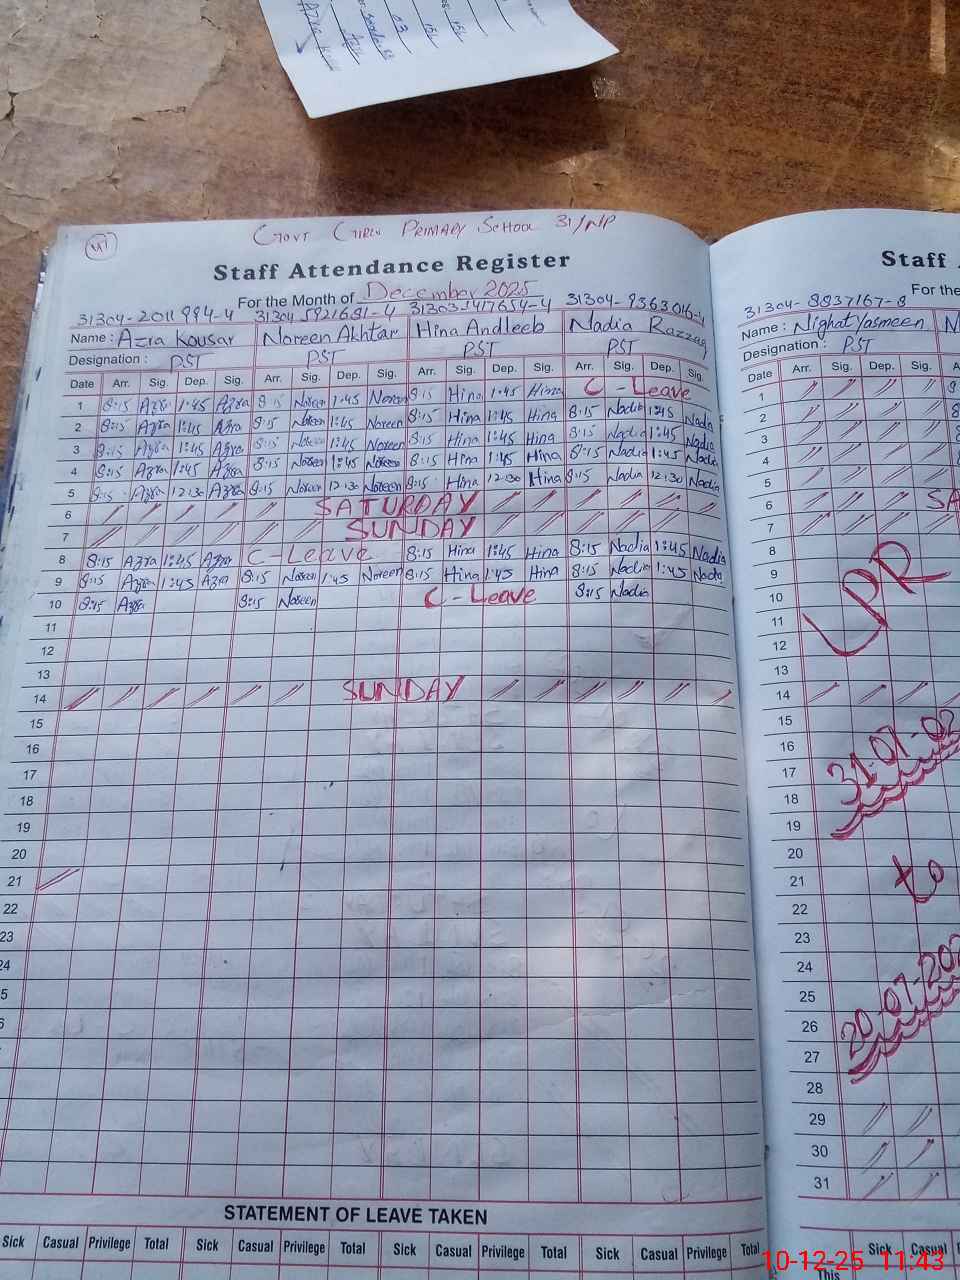 GOVT GIRLS PRIMARY SCHOOL 31/NP
Staff Attendance Register
For the Month of December 2025
31304-2011994-4 31304-5921681-4 31303-5417654-4 31304-9363016-4
Name : Azra Kousar Noreen Akhtar Hina Andleeb Nadia Razzaq
Designation : PST PST PST PST
Date Arr. Sig. Dep. Sig. Arr. Sig. Dep. Sig. Arr. Sig. Dep. Sig. Arr. Sig. Dep. Sig.
1 8:15 Azra 1:45 Azra 8:15 Noreen 1:45 Noreen 8:15 Hina 1:45 Hina C - Leave
2 8:15 Azra 1:45 Azra 8:15 Noreen 1:45 Noreen 8:15 Hina 1:45 Hina 8:15 Nadia 1:45 Nadia
3 8:15 Azra 1:45 Azra 8:15 Noreen 1:45 Noreen 8:15 Hina 1:45 Hina 8:15 Nadia 1:45 Nadia
4 8:15 Azra 1:45 Azra 8:15 Noreen 1:45 Noreen 8:15 Hina 1:45 Hina 8:15 Nadia 1:45 Nadia
5 8:15 Azra 12:30 Azra 8:15 Noreen 12:30 Noreen 8:15 Hina 12:30 Hina 8:15 Nadia 12:30 Nadia
6 SATURDAY
7 SUNDAY
8 8:15 Azra 1:45 Azra C - Leave 8:15 Hina 1:45 Hina 8:15 Nadia 1:45 Nadia
9 8:15 Azra 1:45 Azra 8:15 Noreen 1:45 Noreen 8:15 Hina 1:45 Hina 8:15 Nadia 1:45 Nadia
10 8:15 Azra 8:15 Noreen C - Leave 8:15 Nadia
11
12
13
14 SUNDAY
15
16
17
18
19
20
21
22
23
24
5
6
STATEMENT OF LEAVE TAKEN
Sick Casual Privilege Total Sick Casual Privilege Total Sick Casual Privilege Total Sick Casual Privilege Total
Staff
For the
31304-8837167-8
Name : Nighat Yasmeen
Designation : PST
Date Arr. Sig. Dep. Sig.
1
2
3
4
5
6 SA
7
8
9
10
11
12
13
14
15
16
17
18
19
20
21
22
23
24
25
26
27
28
29
30
31
LPR
31-07-02
to
20-07-202
Sick Casual
This
10-12-25 11:43